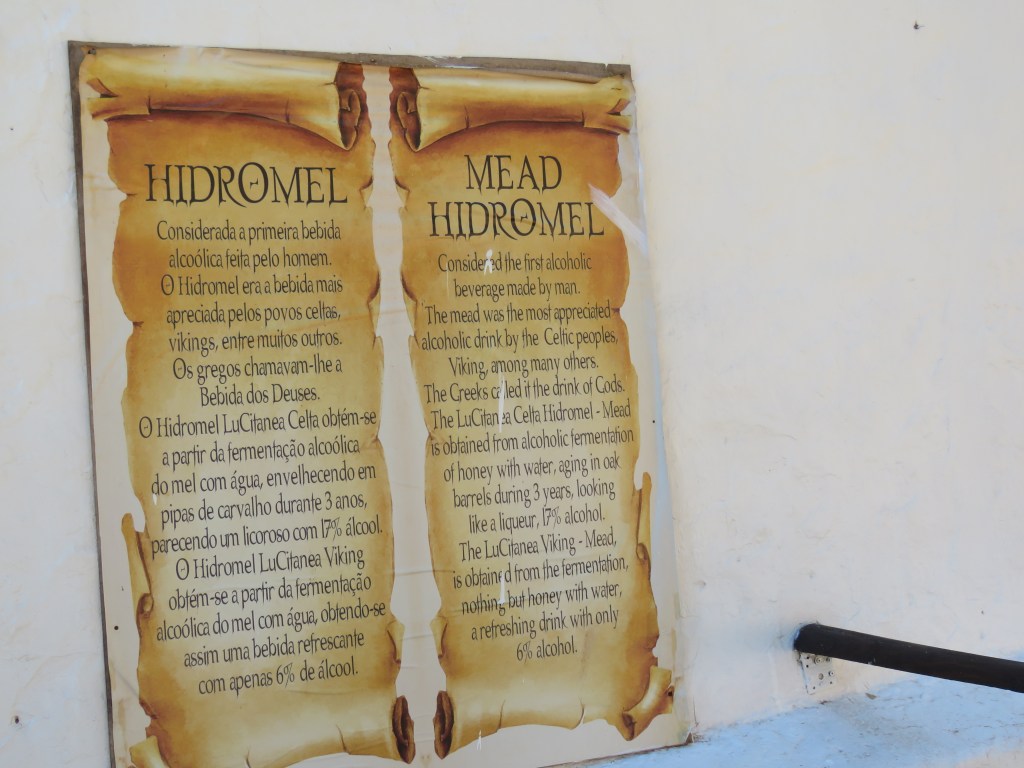 HIDROMEL
Considerada a primeira bebida
alcoólica feita pelo homem.
O Hidromel era a bebida mais
apreciada pelos povos celtas,
vikings, entre muitos outros.
Os gregos chamavam-lhe a
Bebida dos Deuses.
O Hidromel LuCitanea Celta obtém-se
a partir da fermentação alcoólica
do mel com água, envelhecendo em
pipas de carvalho durante 3 anos,
parecendo um licoroso com 17% álcool.
O Hidromel LuCitanea Viking
obtém-se a partir da fermentação
alcoólica do mel com água, obtendo-se
assim uma bebida refrescante
com apenas 6% de álcool.
MEAD
HIDROMEL
Considered the first alcoholic
beverage made by man.
The mead was the most appreciated
alcoholic drink by the Celtic peoples,
Viking, among many others.
The Greeks called it the drink of Gods.
The LuCitanea Celta Hidromel - Mead
is obtained from alcoholic fermentation
of honey with water, aging in oak
barrels during 3 years, looking
like a liqueur, 17% alcohol.
The LuCitanea Viking - Mead,
is obtained from the fermentation,
nothing but honey with water,
a refreshing drink with only
6% alcohol.